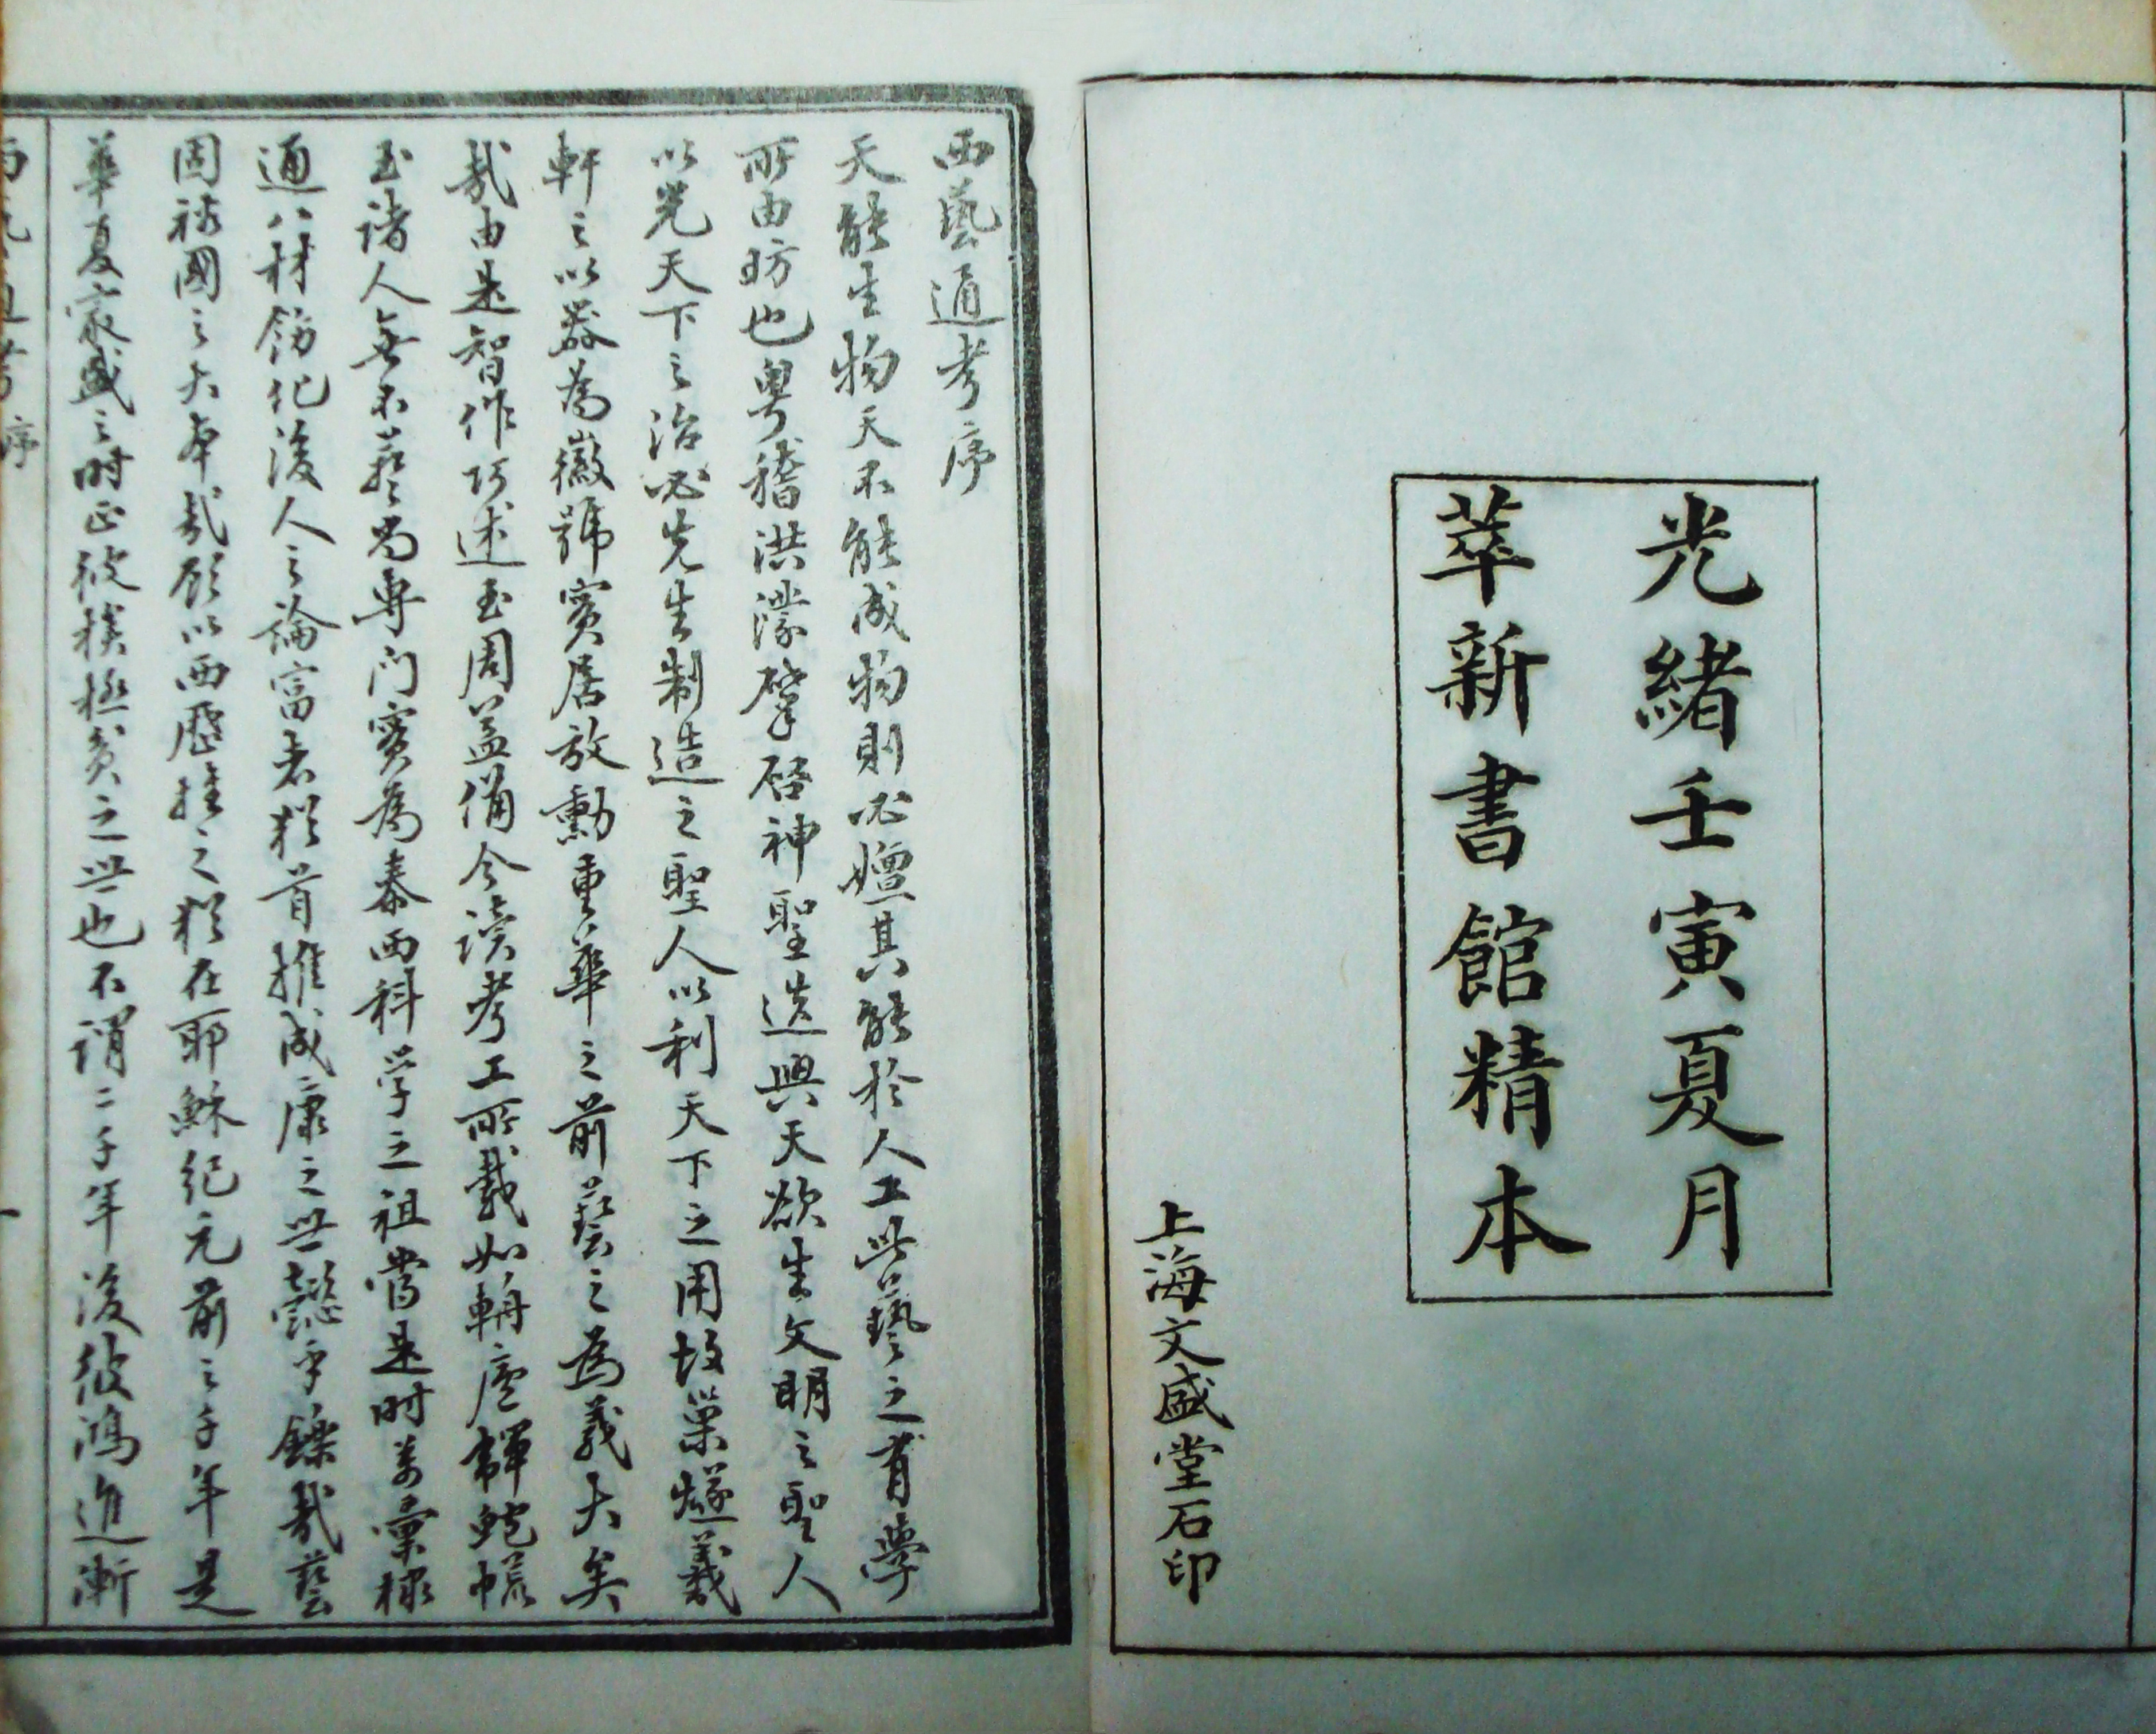 光緒壬寅夏月
萃新書館精本
上海文盛堂石印
西藝通考序
天能生物天不能成物則必嬗其能於人工此藝之肯學
所由昉也粵稽洪濛肇啓神聖迭興天欲生文明之聖人
以光天下之治必先生制造之聖人以利天下之用故巢燧羲
軒之以器為徽號實居放勳重華之前藝之為義大矣
哉由是智作巧述至周益備今讀考工所載如輈廬韗鮑㡛
玉諸人無不藝為專門實為泰西科学之祖當是時萬彙棣
通八材飭化後人之論富者猶首推成康之世懿乎鑠哉藝
固裕國之大本哉顧以西歷推之猶在耶穌紀元前之千年是
華夏家盛之時正彼族極贫之世也不謂二千年後彼鴻進漸
西藝通考 序 一